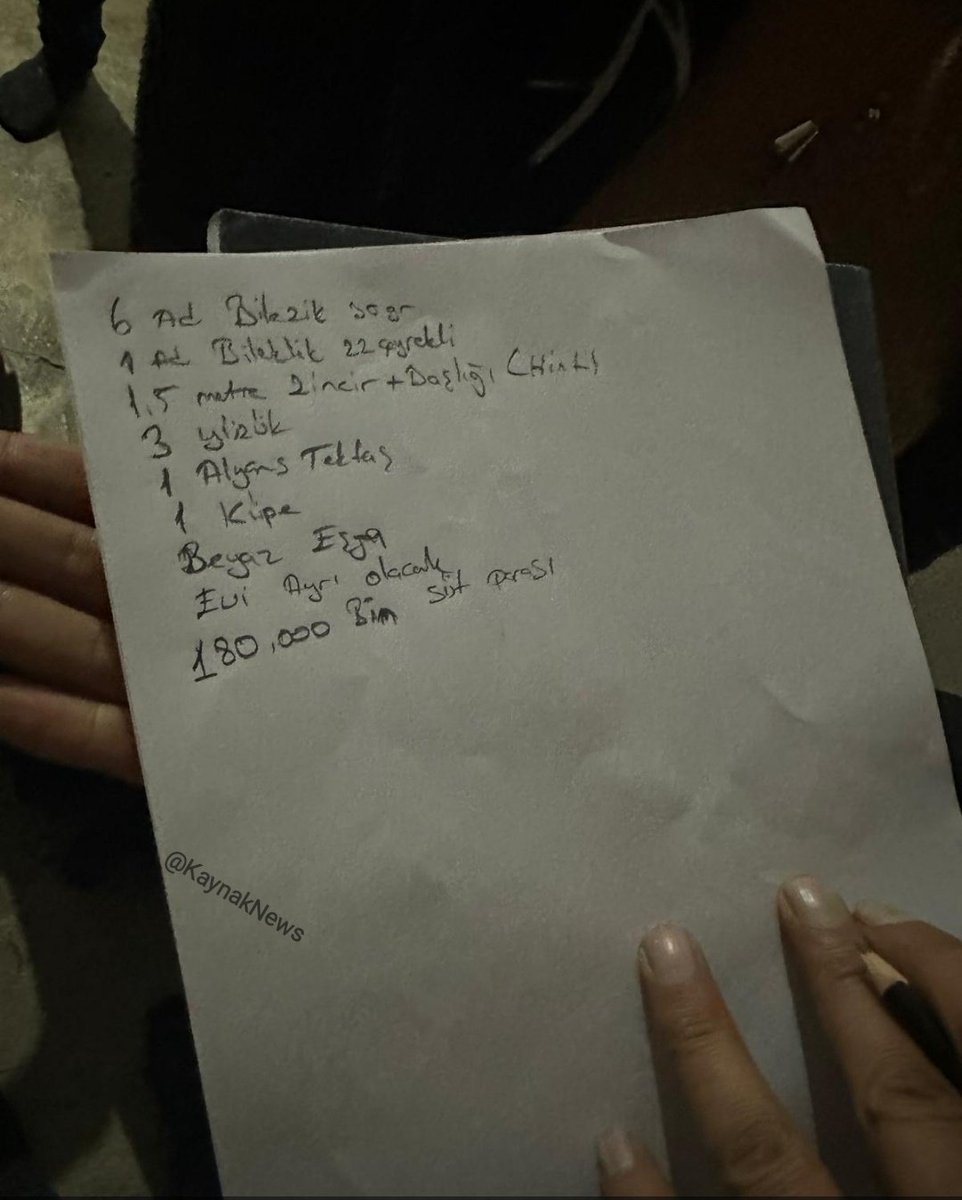 6 Ad Bilezik 30gr
1 Ad Bileklik 22 çeyrekli
1,5 metre Zincir + Daşlığı (Hint)
3 yüzük
1 Alyans Tektaş
1 Küpe
Beyaz Eşya
Evi Ayrı olacak
180,000 Bin süt parası
@KaynakNews